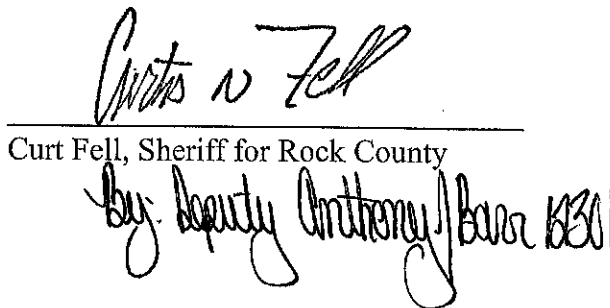 Curtis N Fell
Curt Fell, Sheriff for Rock County
By: Deputy Anthony J Barr